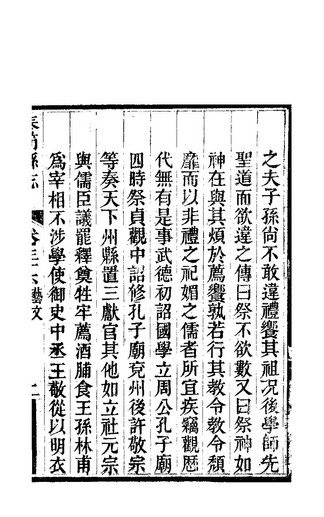 之夫子孫尚不敢違禮饗其祖况後學師先
聖道而欲違之傳曰祭不欲數又曰祭神如
神在與其煩於薦饗孰若行其教令教令頹
靡而以非禮之祀媚之儒者所宜疾竊觀歷
代無有是事武德初詔國學立周公孔子廟
四時祭貞觀中詔修孔子廟兖州後許敬宗
等奏天下州縣置三獻官其他如立社元宗
與儒臣議罷釋奠牲牢薦酒脯食王孫林甫
為宰相不涉學使御史中丞王敬從以明衣
縣志
卷三六藝文